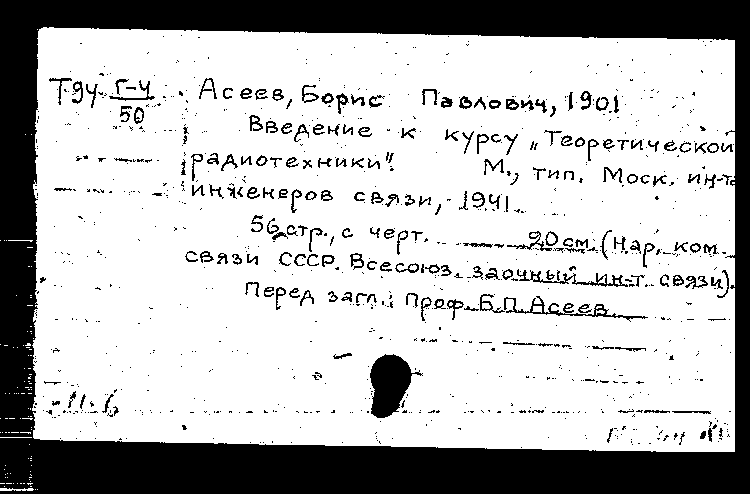 Т94 Г-4
50
Асеев, Борис Павлович, 1901
Введение к курсу „Теоретической
радиотехники".  М., тип. Моск. ин-та
инженеров связи, 1941.
56 стр., с черт. 20 см. (Нар. ком.
связи СССР. Всесоюз. заочный ин-т связи).
Перед загл.: Проф. Б.П. Асеев
11.6